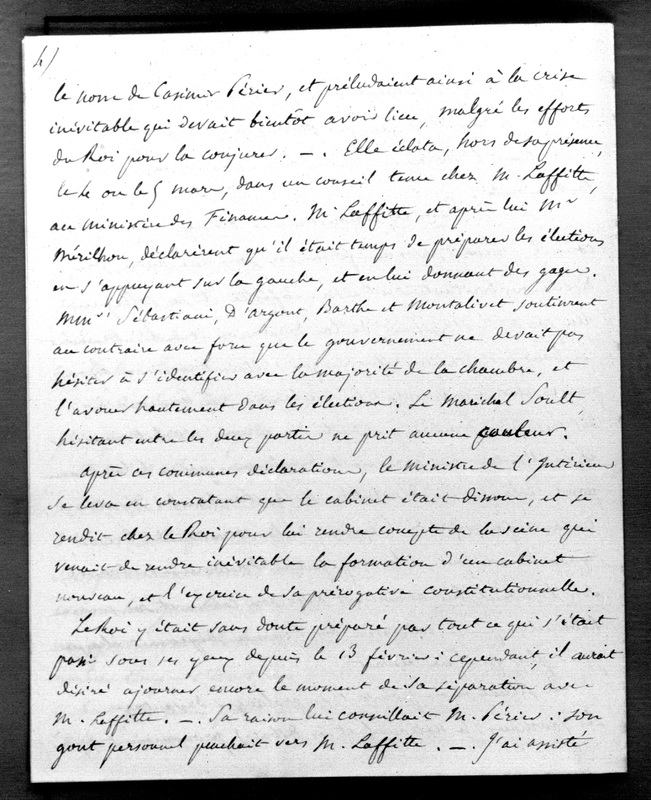 4)
le nom de Casimir Périer, et préludaient ainsi à la crise
inévitable qui devait bientôt avoir lieu, malgré les efforts
du Roi pour la conjurer. —. Elle éclata, hors de sa présence,
le 4 ou le 5 mars, dans un conseil tenu chez M. Laffitte,
au ministère des Finances. Mr Laffitte, et après lui Mr
Mérilhou, déclarèrent qu'il était temps de préparer les élections
en s'appuyant sur la gauche, et en lui donnant des gages.
Mmrs Sébastiani, D'argout, Barthe et Montalivet soutinrent
au contraire avec force que le gouvernement ne devait pas
hésiter à s'identifier avec la majorité de la chambre, et
l'avouer hautement dans les élections. Le Maréchal Soult,
hésitant entre les deux partis ne prit aucune couleur.
Après ces communes déclarations, le ministre de l'Intérieur
se leva en constatant que le cabinet était dissous, et se
rendit chez le Roi pour lui rendre compte de la scène qui
venait de rendre inévitable la formation d'un cabinet
nouveau, et l'exercice de sa prérogative constitutionnelle.
Le Roi y était sans doute préparé par tout ce qui s'était
passé sous ses yeux depuis le 13 février : cependant, il aurait
désiré ajourner encore le moment de sa séparation avec
M. Laffitte. —. Sa raison lui conseillait M. Périer : son
gout personnel penchait vers M. Laffitte. —. J'ai assisté